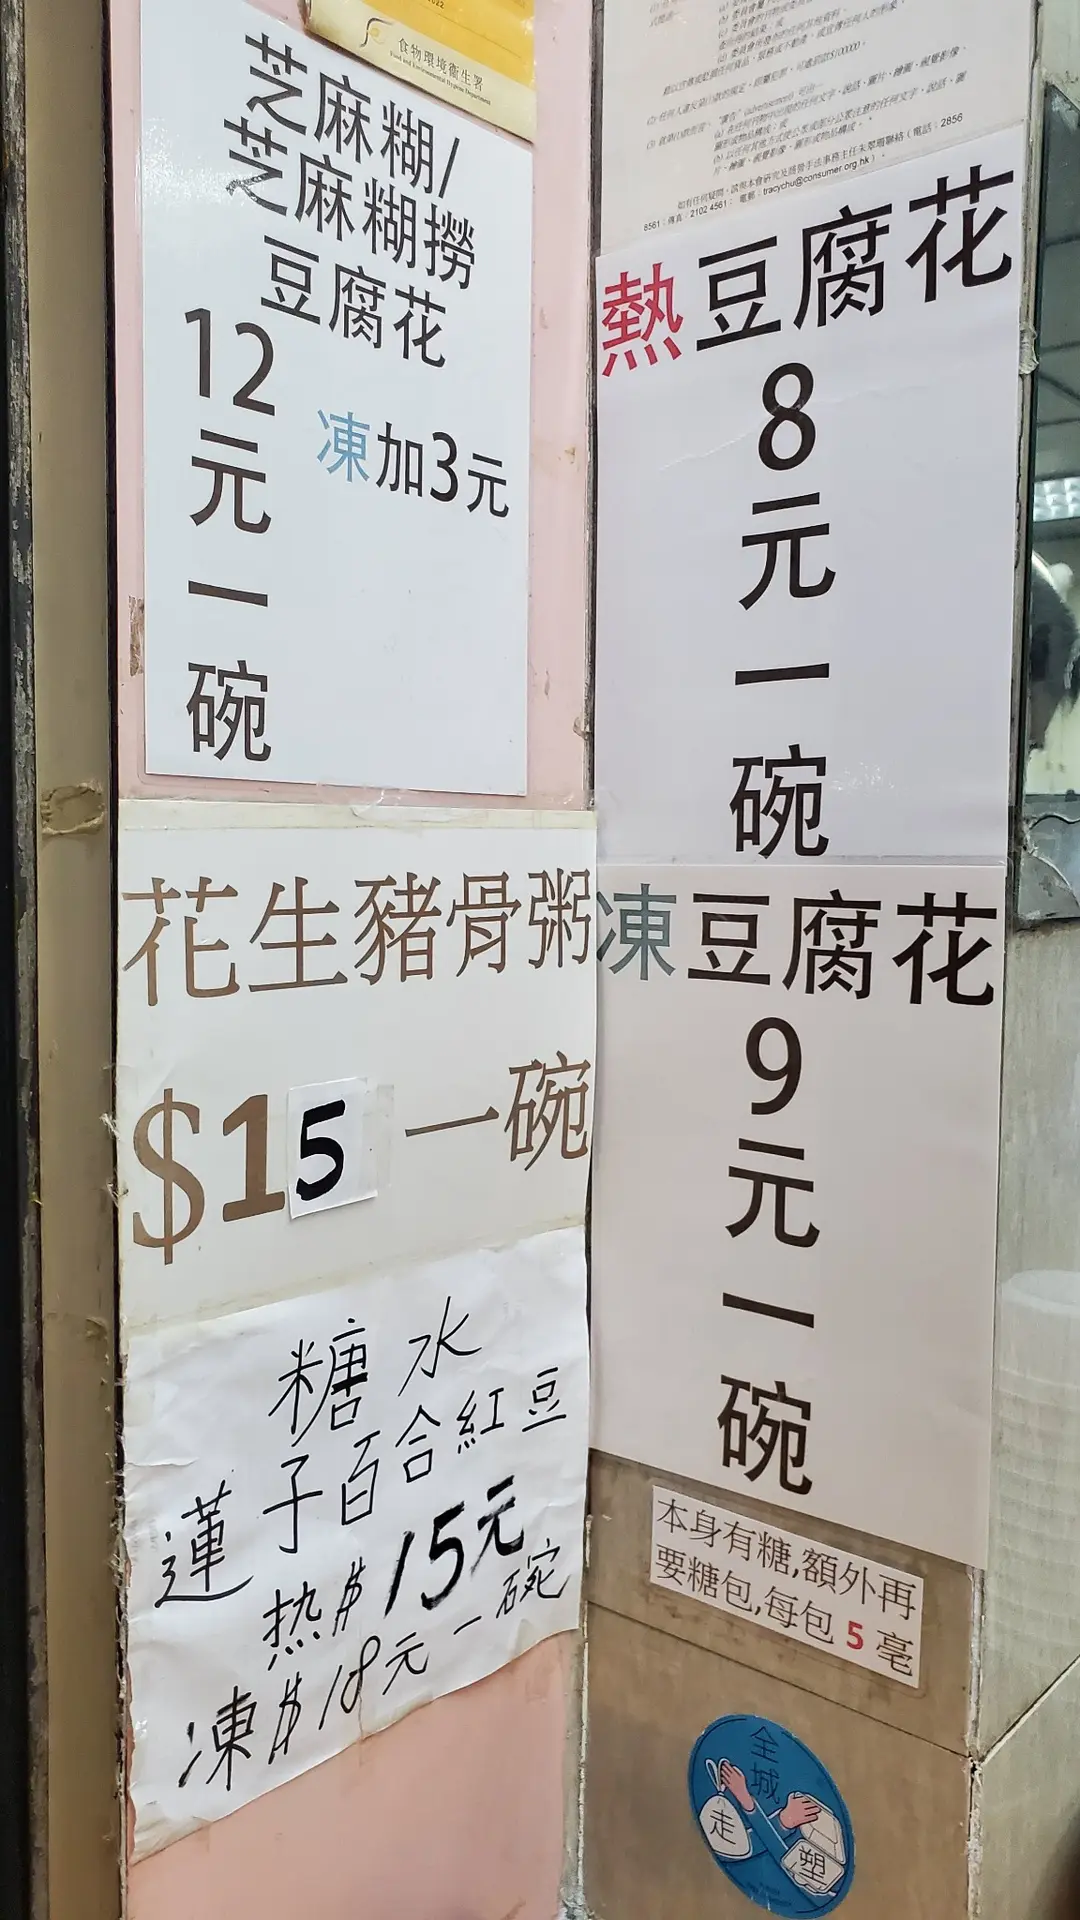 2022
食物環境衞生署
Food and Environmental Hygiene Department
芝麻糊/
芝麻糊撈
豆腐花
12元一碗
凍加3元
花生豬骨粥
$15一碗
糖水
蓮子百合紅豆
热$15元
凍$18元一碗
8561；傳真：2102 4561； 電郵：tracychu@consumer.org.hk）。
熱豆腐花
8元一碗
凍豆腐花
9元一碗
本身有糖,額外再
要糖包,每包5毫
全城
走塑